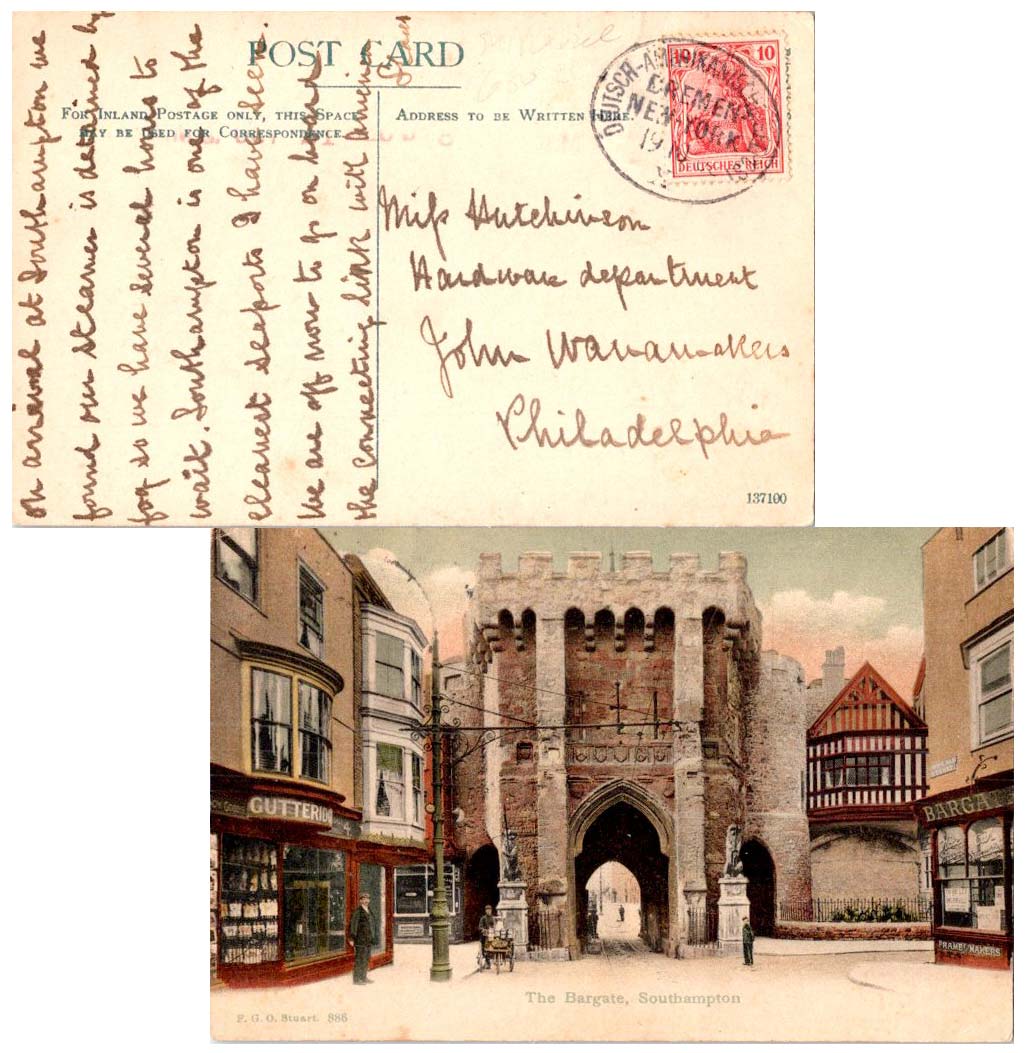 POST CARD
FOR INLAND POSTAGE ONLY, THIS SPACE
MAY BE USED FOR CORRESPONDENCE.
ADDRESS TO BE WRITTEN HERE.
BREMEN-
NEW YORK
10 10
DEUTSCHES REICH
on arrival at Southampton we
found our steamer is detained by
fog so we have several hours to
wait. Southampton is one of the
cleanest seaports I have seen.
We are off now to go on board
the connecting link with America
Miss Hutchinson
Hardware department
John Wanamakers
Philadelphia
137100
GUTTERID
BARGA
FRAME MAKERS
The Bargate, Southampton
F. G. O. Stuart. 886